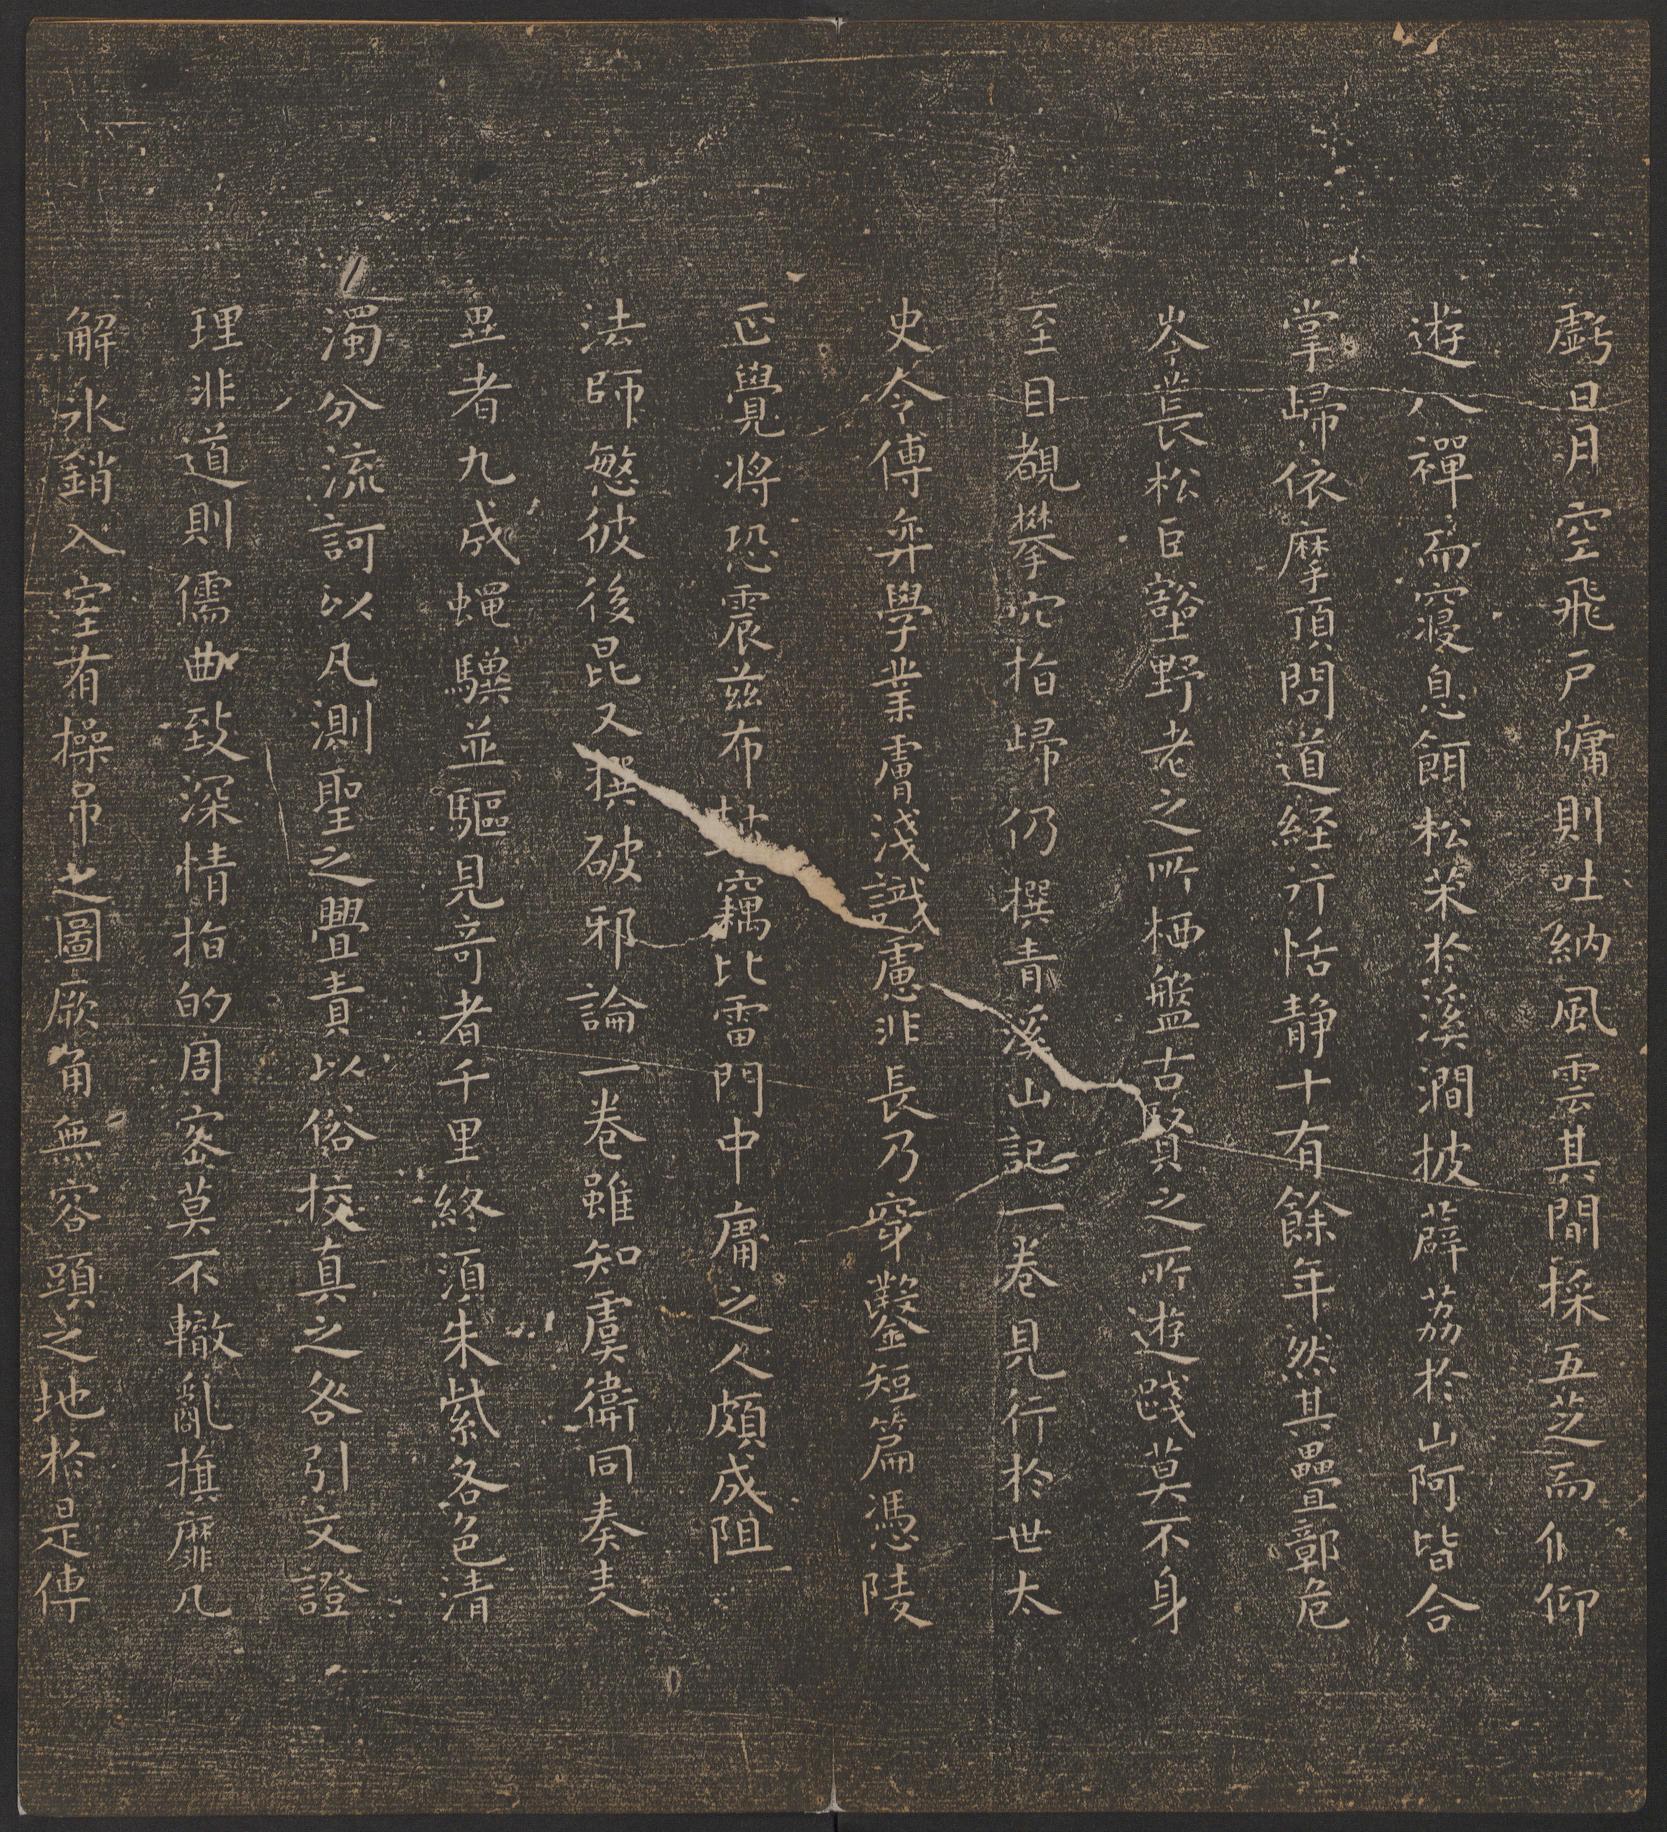 虧日月空飛戶牖則吐納風雲其間採五芝而仰
遊八禪而寢息餌松朮於溪澗披薜荔於山阿皆合
掌歸依摩頂問道經行恬靜十有餘年然其疊鄣危
岑長松巨壑野老之所栖盤古賢之所遊踐莫不身
至目覩攀穴指歸仍撰青溪山記一卷見行於世太
史令傅弈學業膚淺識慮非長乃穿鑿短篇憑陵
正覺將恐震茲布鼓竊比雷門中庸之人頗成阻
法師愍彼後昆又撰破邪論一卷雖知虞衛同奏夫
異者九成蠅驥並驅見奇者千里終須朱紫各色清
濁分流訶以凡測聖之舋責以俗校真之咎引文證
理非道則儒曲致深情指的周密莫不轍亂旗靡凡
解冰銷入室有操矛之圖厥角無容頭之地於是傅